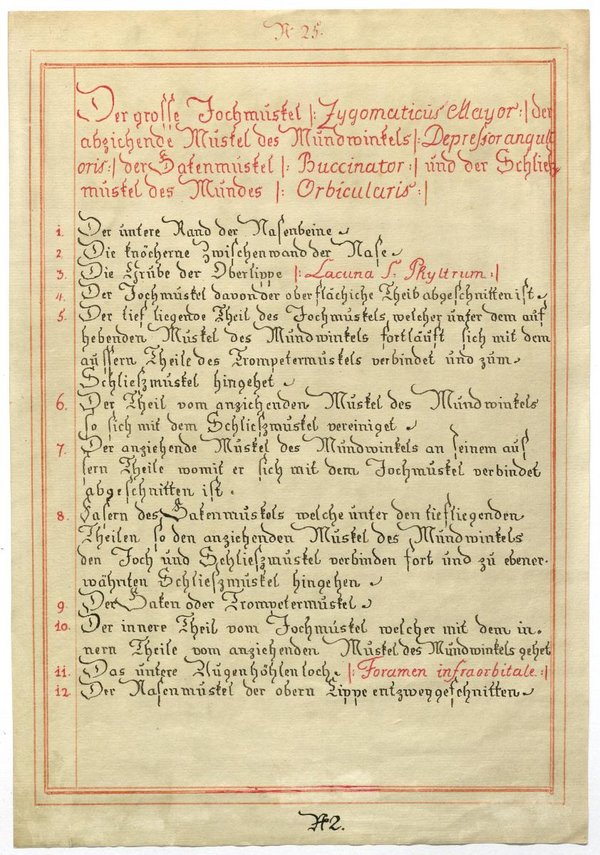 N. 25.
Der grosse Jochmuskel |: Zygomaticus Mayor :| der
abziehende Muskel des Mundwinkels |: Depressor anguli
oris :| der Bakenmuskel |: Buccinator :| und der Schliesz-
muskel des Mundes |: Orbicularis :|
1. Der untere Rand der Nasenbeine
2. Die knöcherne Zwischenwand der Nase
3. Die Grube der Oberlippe |: Lacuna S. Phyltrum :|
4. Der Jochmuskel davon der oberflächiche Theib abgeschnitten ist
5. Der tief liegende Theil des Jochmuskels, welcher unter dem auf
hebenden Muskel des Mundwinkels fortläuft sich mit dem
äussern Theile des Trompetermuskels verbindet und zum
Schlieszmuskel hingehet
6. Der Theil vom anziehenden Muskel des Mundwinkels
so sich mit dem Schlieszmuskel vereiniget
7. Der anziehende Muskel des Mundwinkels an seinem aus
sern Theile womit er sich mit dem Jochmuskel verbindet
abgeschnitten ist.
8. Fasern des Bakenmuskels welche unter den tiefliegenden
Theilen so den anziehenden Muskel des Mundwinkels
den Joch und Schlieszmuskel verbinden fort und zu ebener-
wähnten Schlieszmuskel hingehen
9. Der Baken oder Trompetermuskel
10. Der innere Theil vom Jochmuskel welcher mit dem in-
nern Theile vom anziehenden Muskel des Mundwinkels gehet
11. Das untere Augenhöhlenloch. |: Foramen infraorbitale :|
12. Der Nasenmuskel der obern Lippe entzweygeschnitten
N 2.